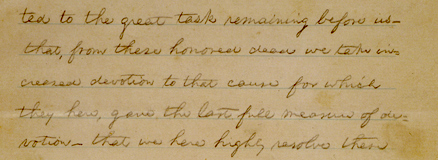 ted to the great task remaining before us—
that, from these honored dead we take in-
creased devotion to that cause for which
they here, gave the last full measure of de-
votion— that we here highly resolve these